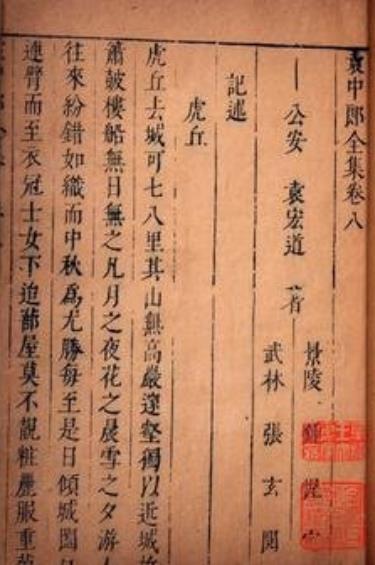 袁中郎全集卷八
公安 袁宏道 著
景陵 鍾惺
武林 張玄
記述
虎丘
虎丘去城可七八里其山無高巖邃壑獨以近城故
簫皷樓船無日無之凡月之夜花之晨雪之夕游人
往來紛錯如織而中秋為尤勝每至是日傾城闔戶
連臂而至衣冠士女下迨蔀屋莫不靚粧麗服重